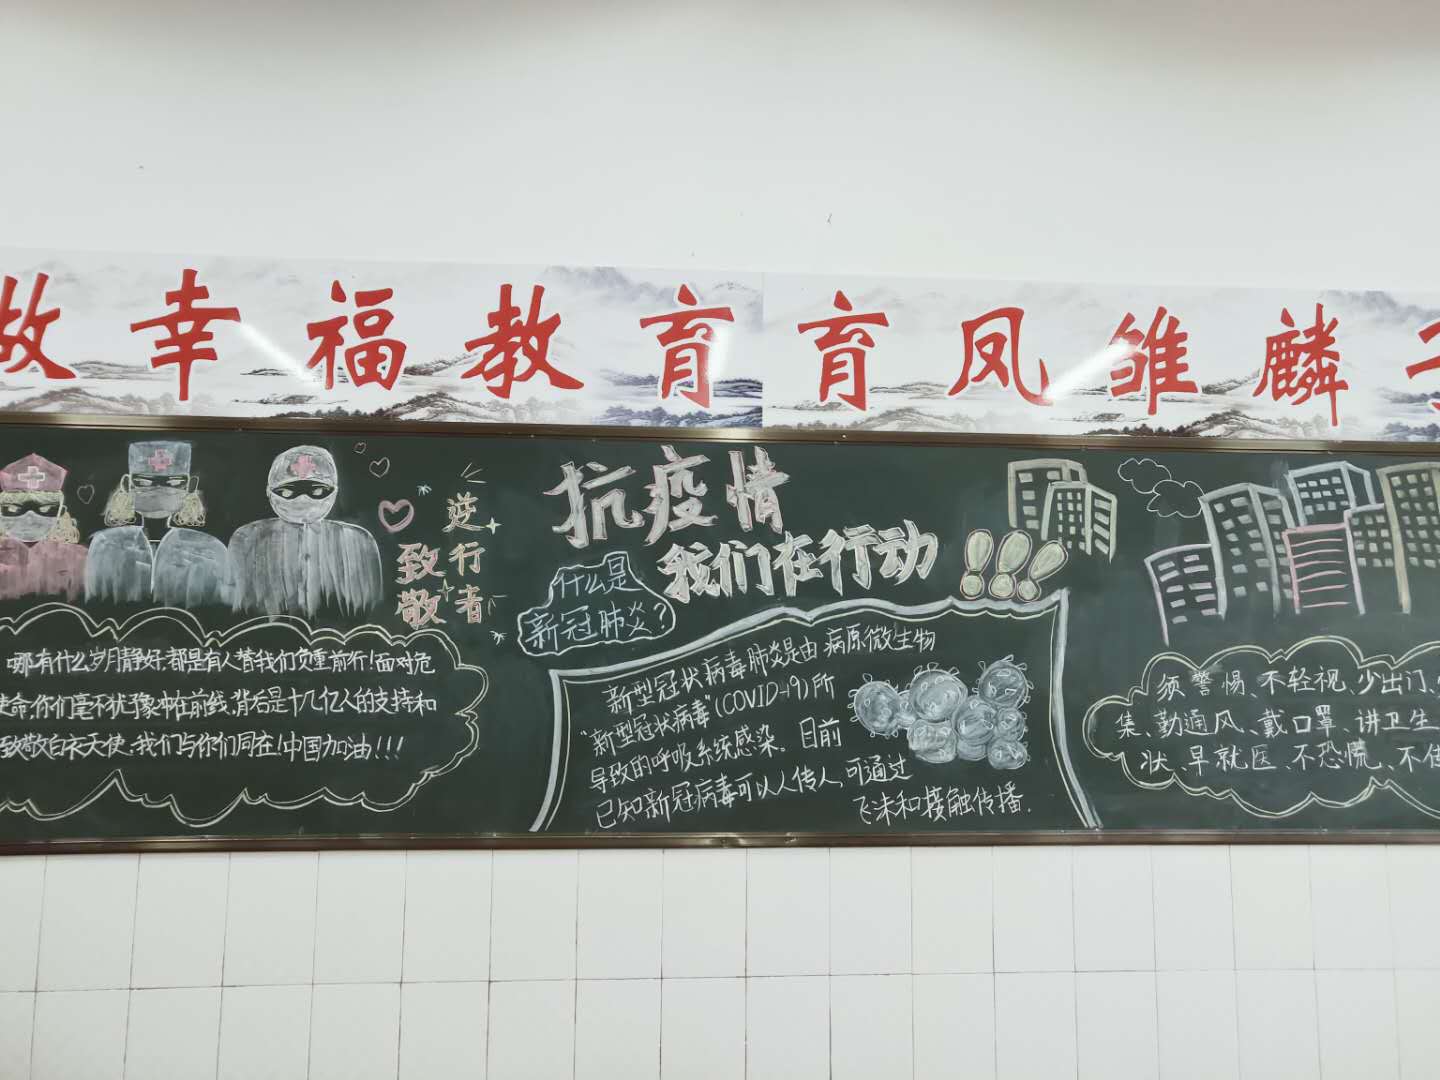 做幸福教育 育凤雏麟子
致敬
逆行者
哪有什么岁月静好,都是有人替我们负重前行!面对危
使命,你们毫不犹豫冲在前线,背后是十几亿人的支持和
致敬白衣天使,我们与你们同在!中国加油!!!
抗疫情
我们在行动!!!
什么是
新冠肺炎?
新型冠状病毒肺炎是由病原微生物
“新型冠状病毒”(COVID-19)所
导致的呼吸系统感染。目前
已知新冠病毒可以人传人,可通过
飞沫和接触传播.
须警惕、不轻视、少出门、
集、勤通风、戴口罩、讲卫生
状、早就医、不恐慌、不信